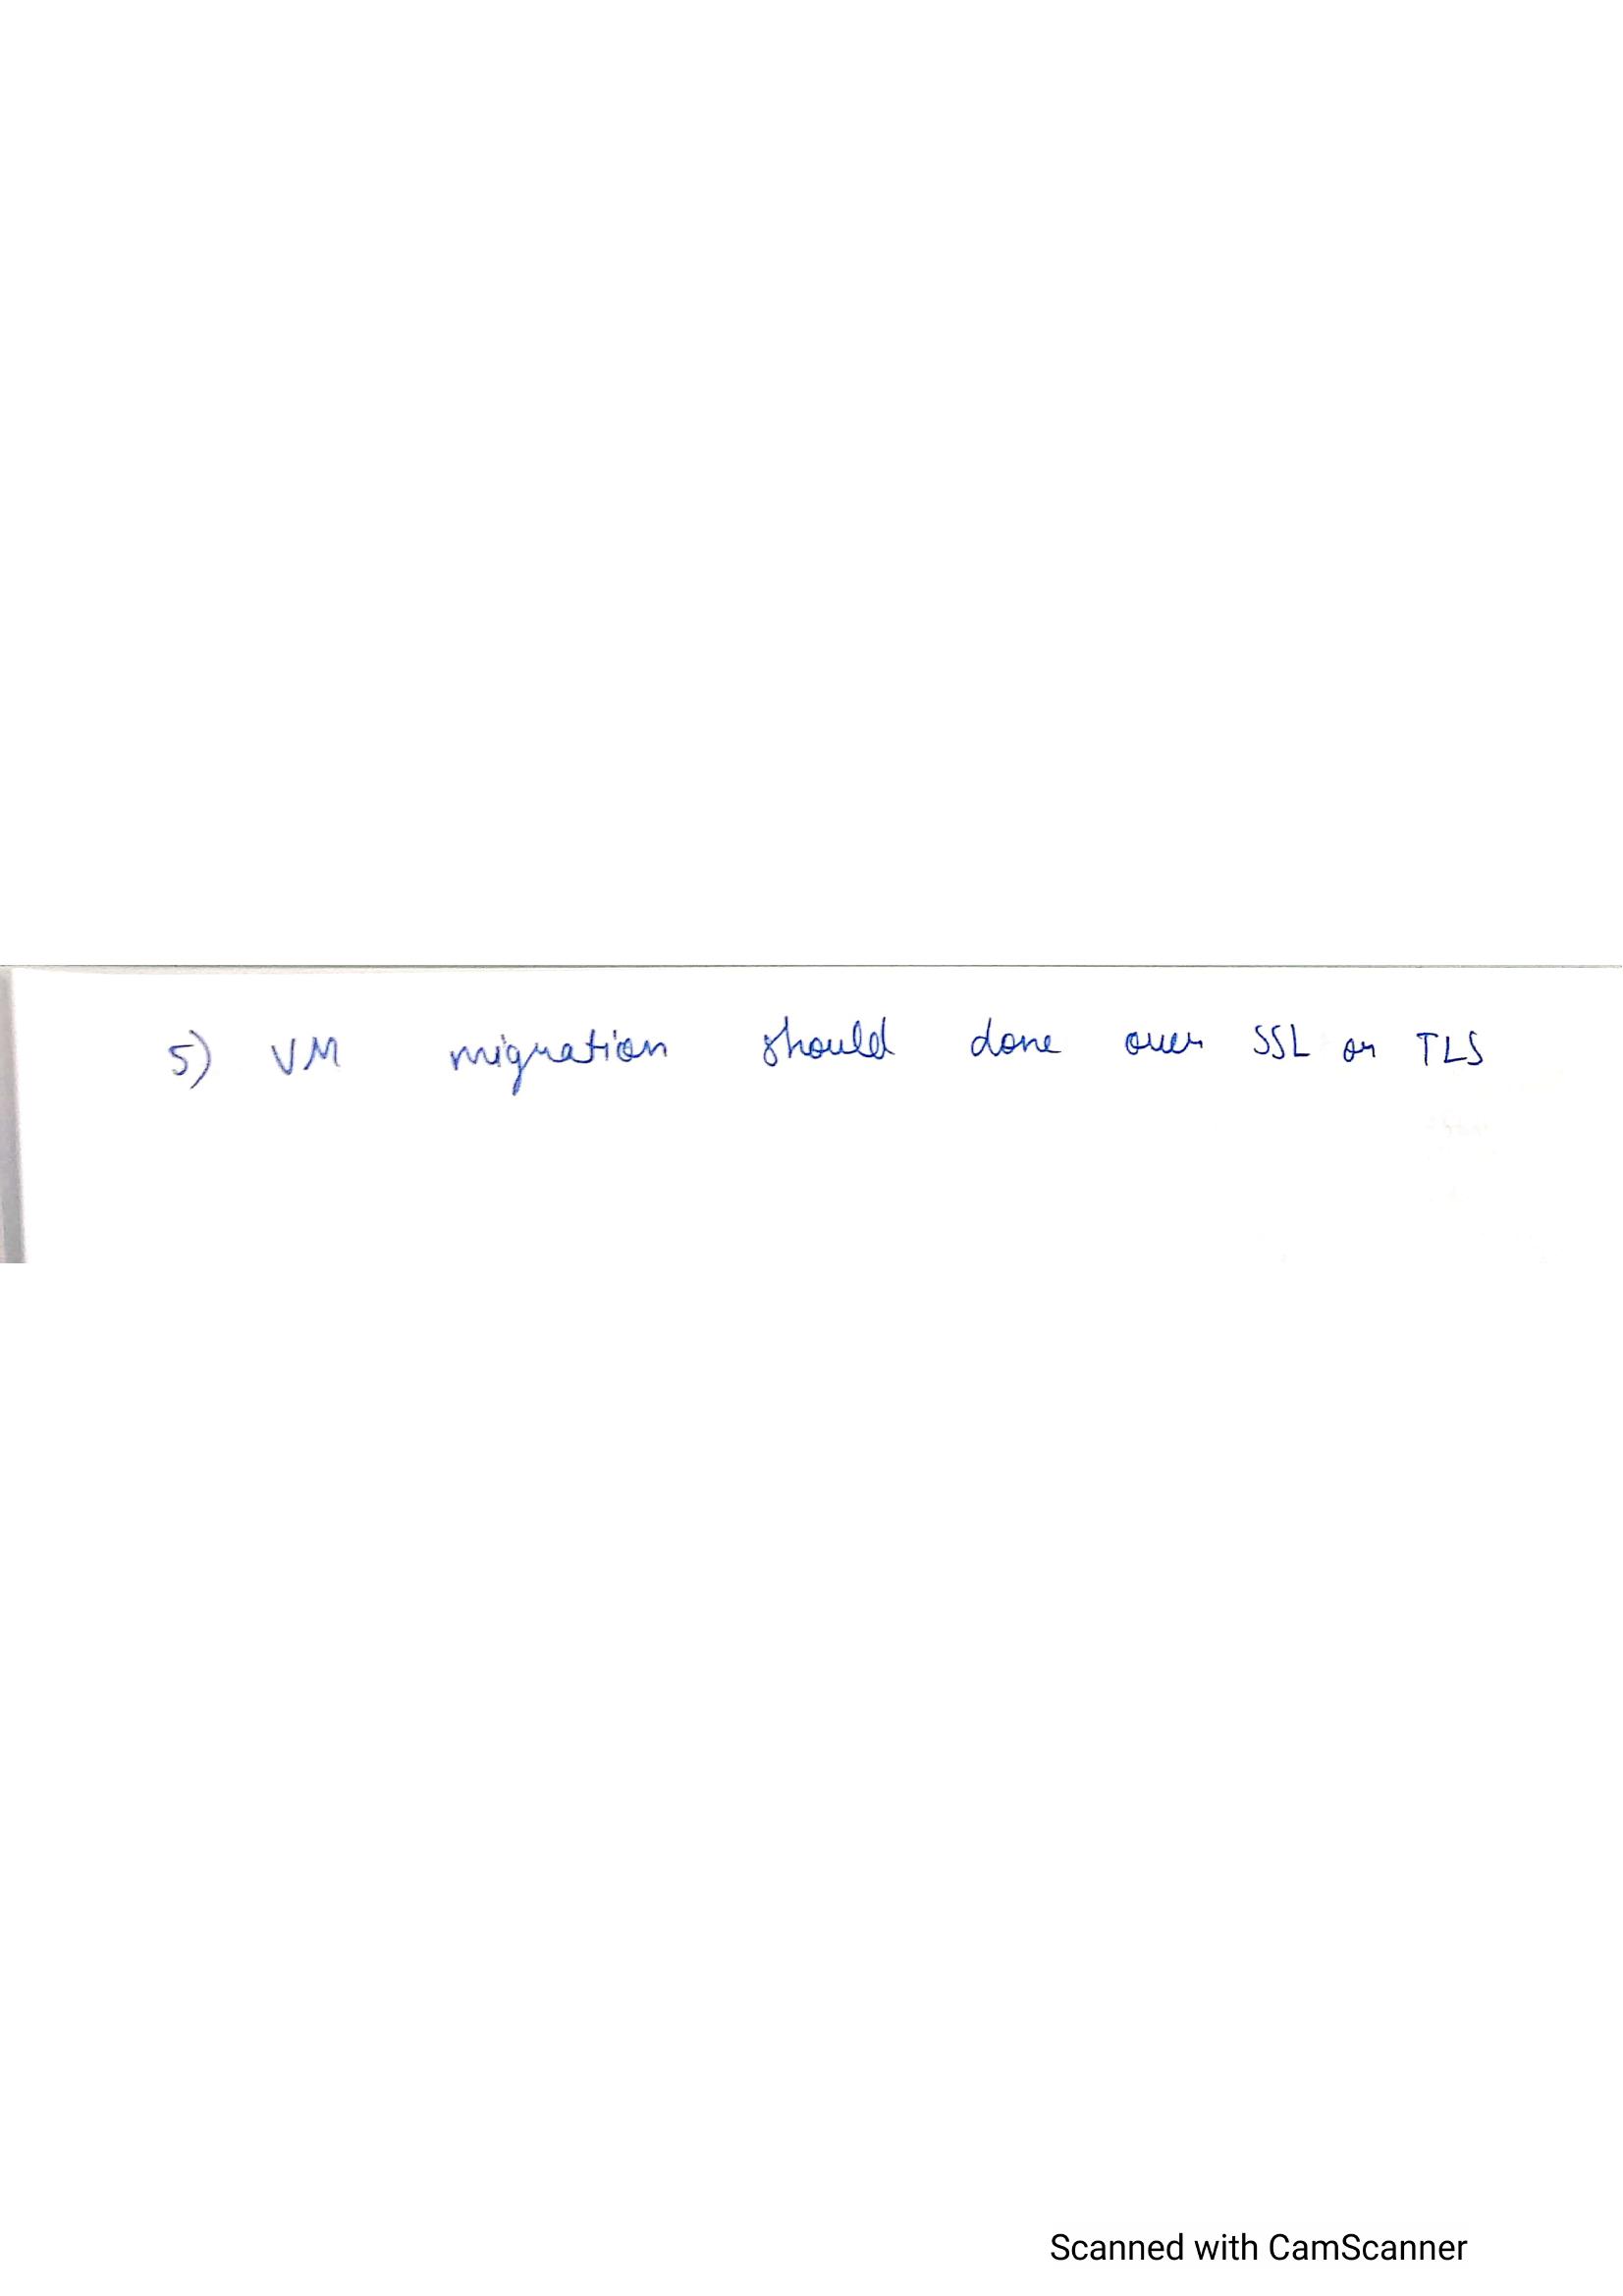 5) VM migration should done over SSL or TLS
Scanned with CamScanner